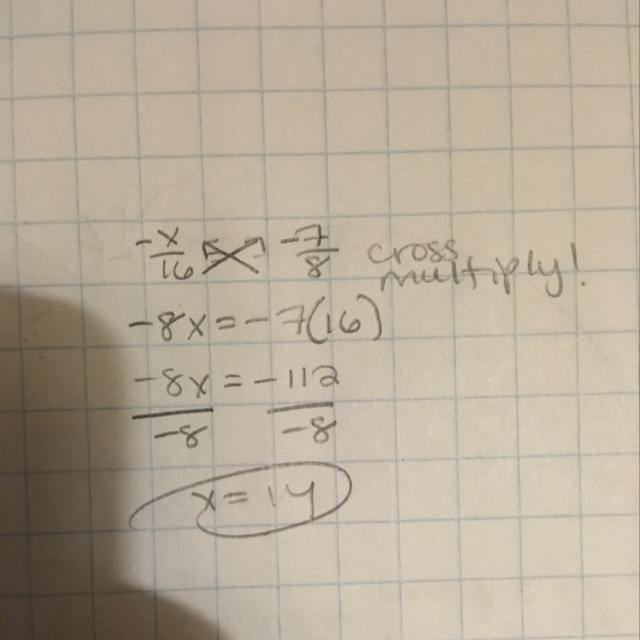 -x/16 = -7/8 cross multiply!
-8x = -7(16)
-8x = -112
-8 -8
x = 14